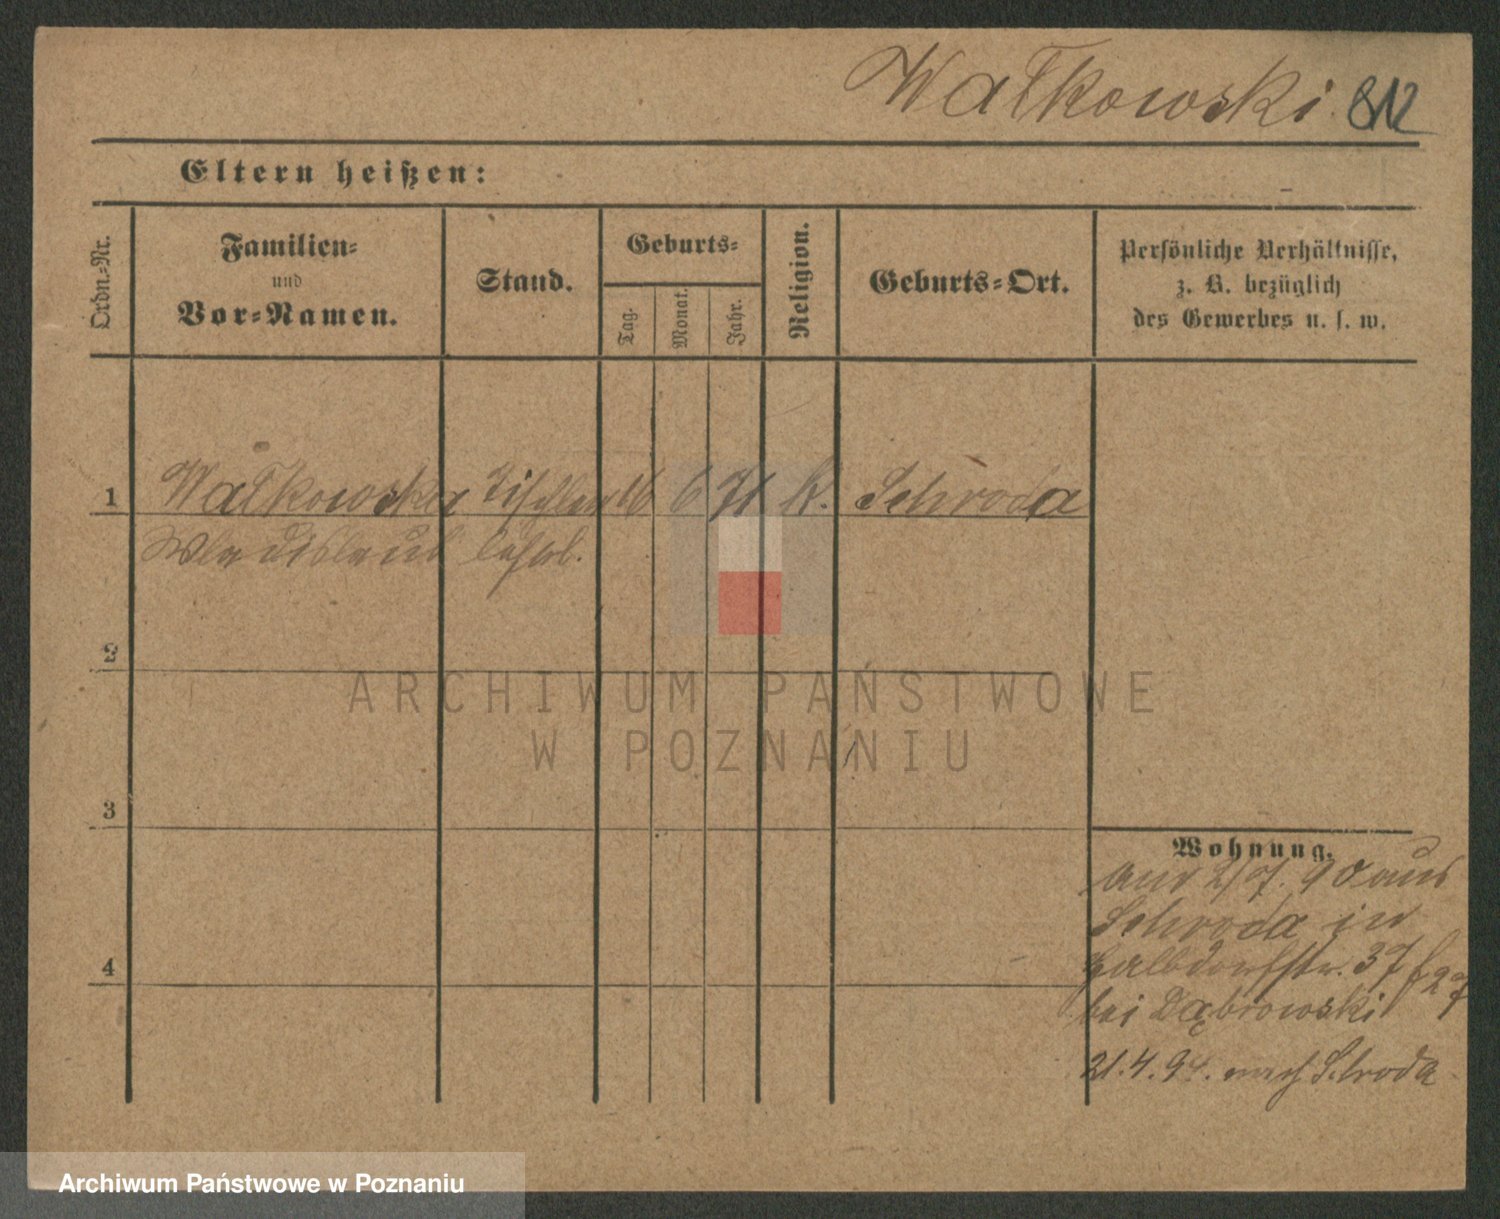 Wałkowski. 812
Eltern heißen:
Ordn.-Nr.
Familien-
und
Vor-Namen.
Stand.
Geburts-
Tag.
Monat.
Jahr.
Religion.
Geburts-Ort.
Persönliche Verhältnisse,
z. B. bezüglich
des Gewerbes u. s. w.
1 Wałkowski Tischler 16 6 71 k. Schroda
Wladislaus lehrl.
2
3
4
Wohnung.
2/7. 90 aus
Schroda in
Halbdorfstr. 37
bei Dąbrowski
21.4.94. nach Schroda
ARCHIWUM PAŃSTWOWE
W POZNANIU
Archiwum Państwowe w Poznaniu